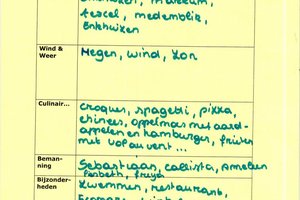 texel, medemblik,
Enkhuizen
Wind & Weer
Regen, wind, zon
Culinair...
Croques, spagetti, pizza,
chinees, appelmoes met aard-
appelen en hamburger, frieten
met vol au vent...
Beman-
ning
Sebastiaan, callista, Annelien
Liesbeth, freya
Bijzonder-
heden
Zwemmen, restaurant,